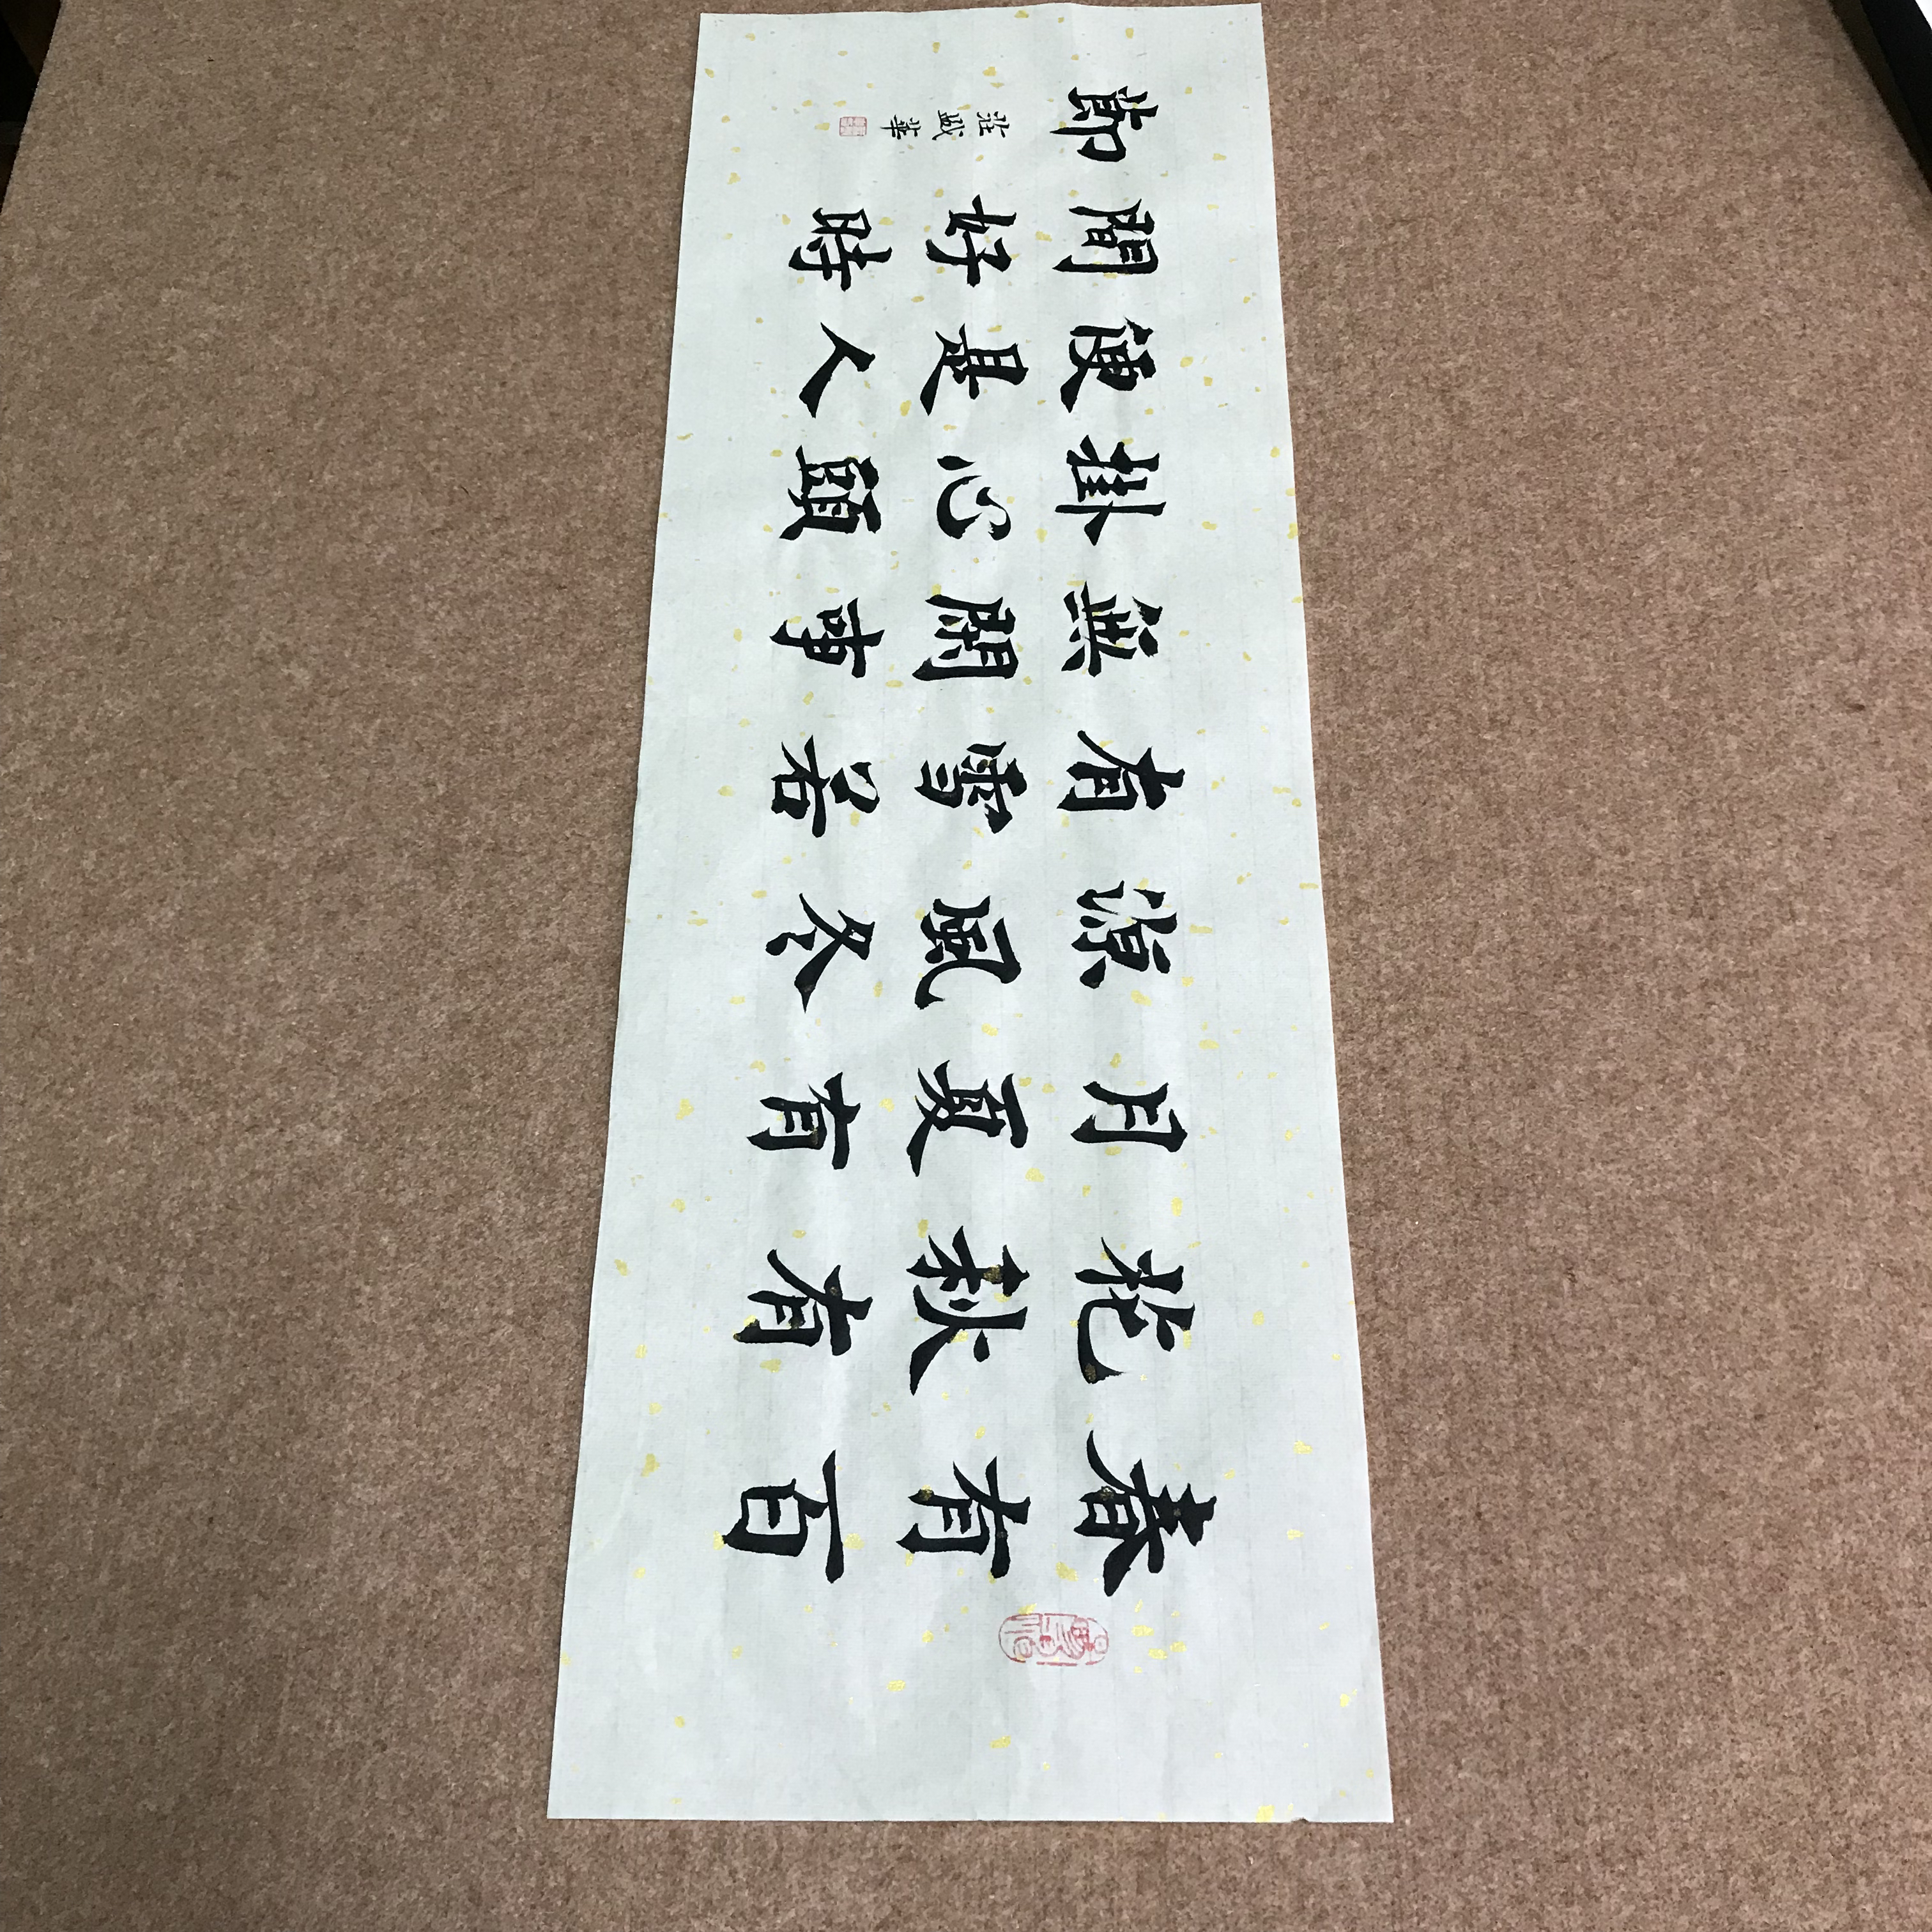 春有百
花秋有
月夏有
涼風冬
有雪若
無閑事
掛心頭
便是人
間好時
節
莊盛華